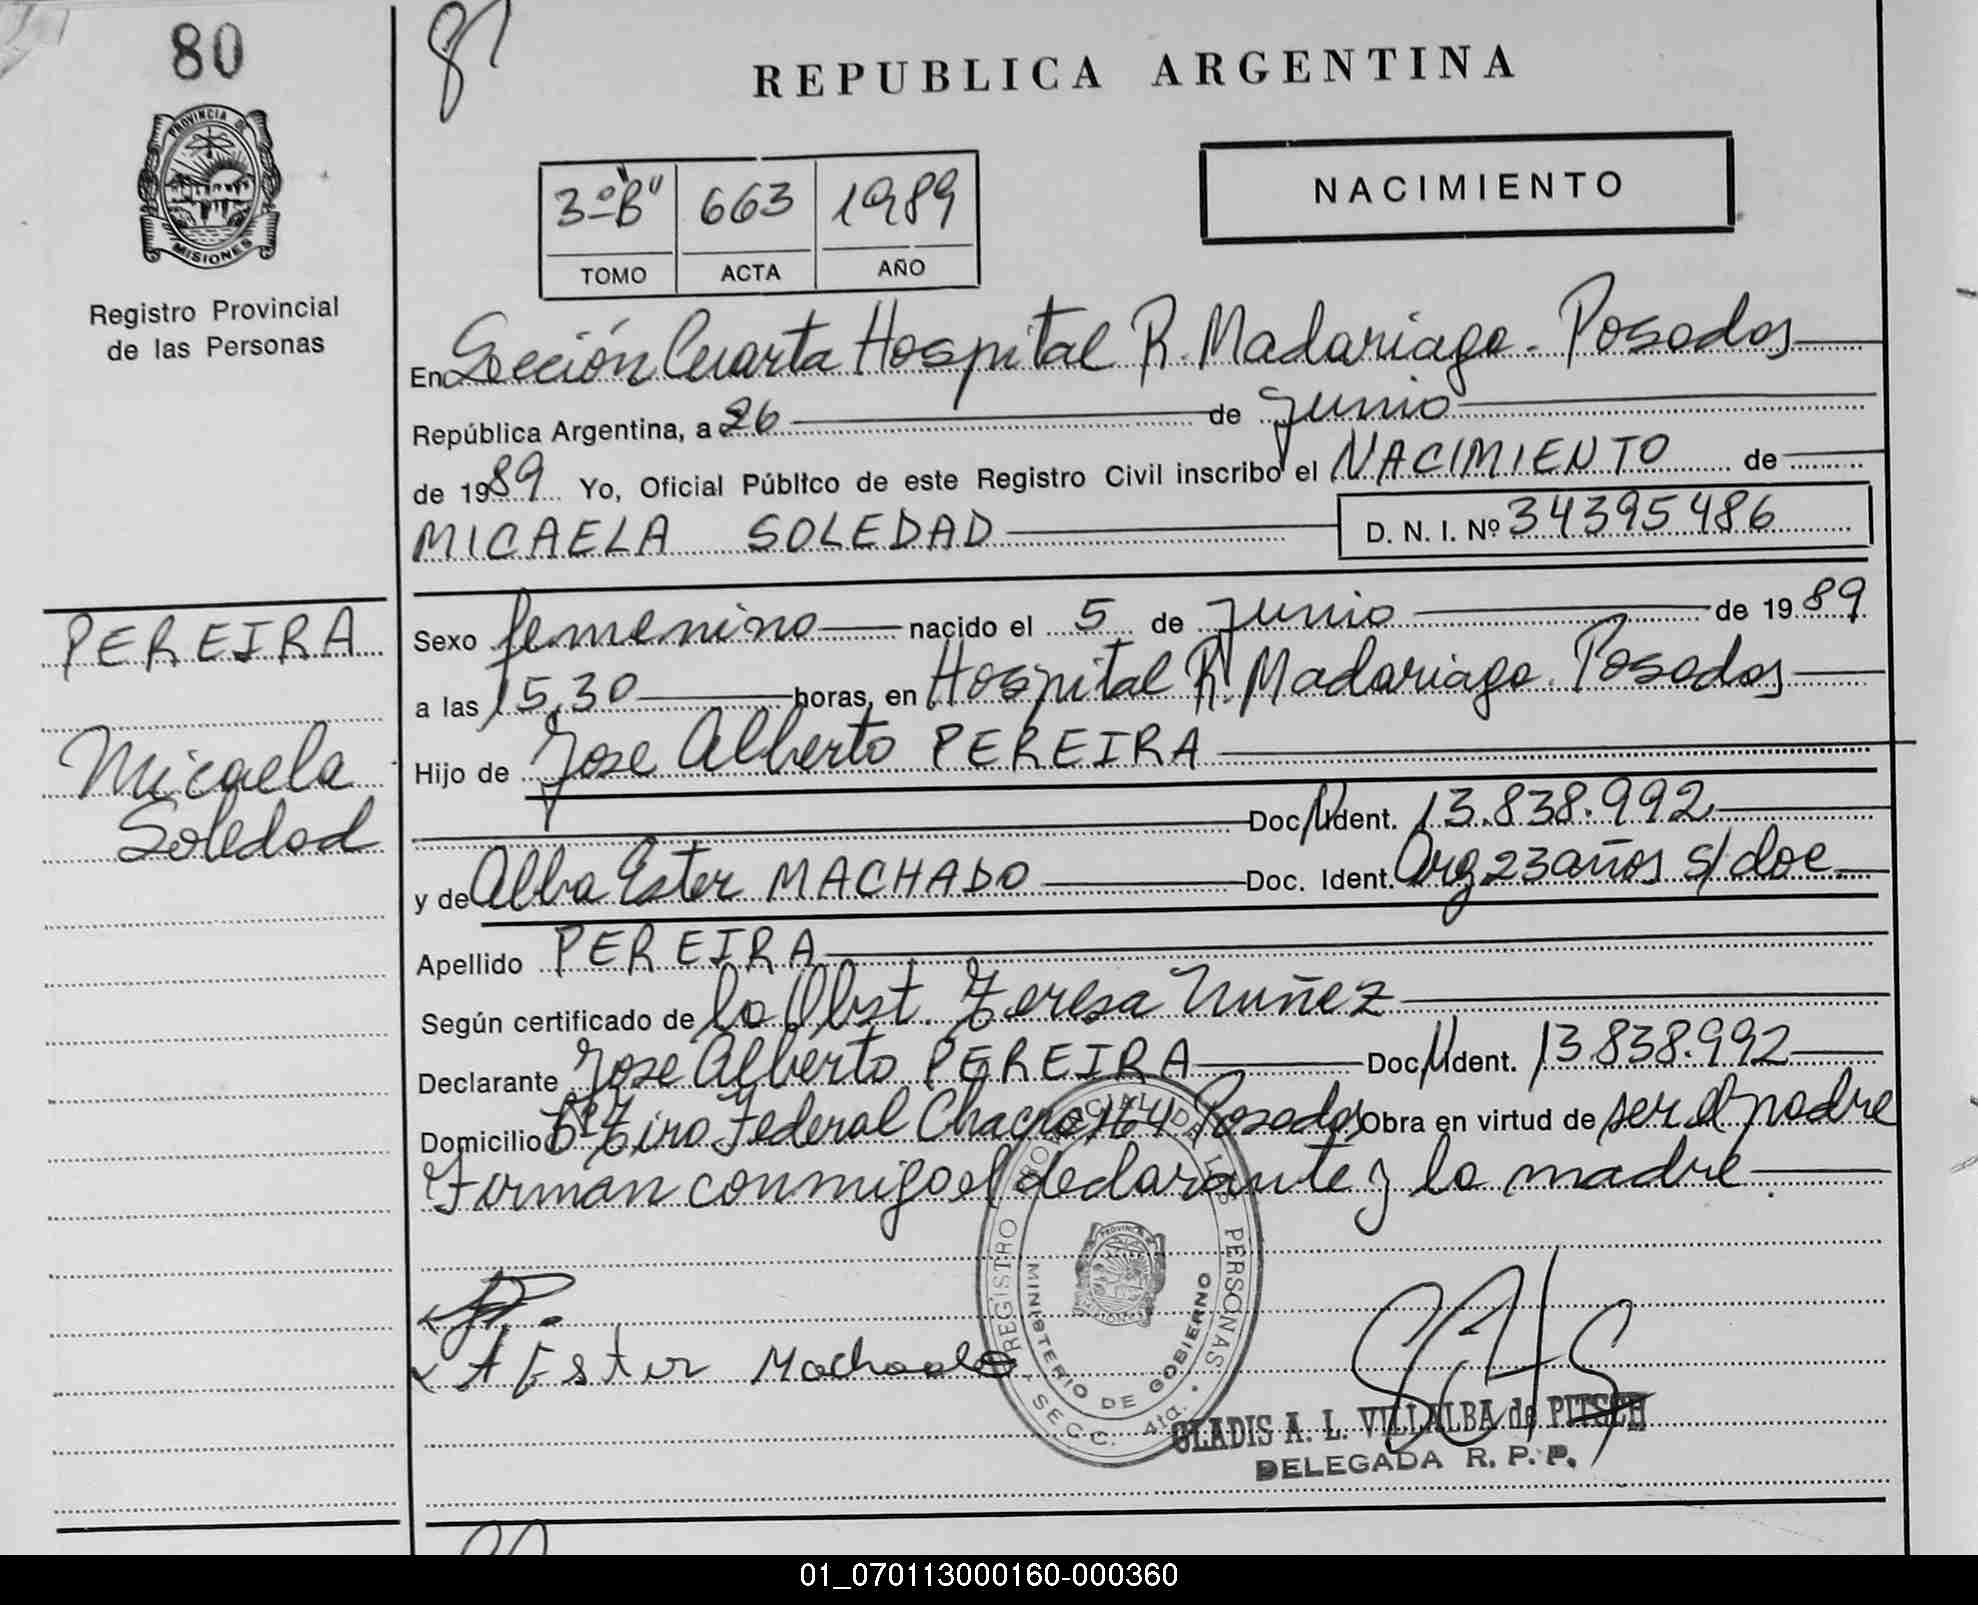 80
PROVINCIA DE
MISIONES
Registro Provincial
de las Personas
PEREIRA
Micaela
Soledad
81
REPUBLICA ARGENTINA
3º "B" 663 1989
TOMO ACTA AÑO
NACIMIENTO
En Sección Cuarta Hospital R. Madariaga. Posadas
República Argentina, a 26 de Junio
de 1989 Yo, Oficial Público de este Registro Civil inscribo el NACIMIENTO de
MICAELA SOLEDAD D. N. I. Nº 34395486
Sexo femenino nacido el 5 de Junio de 1989
a las 15,30 horas, en Hospital R. Madariaga. Posadas
Hijo de Jose Alberto PEREIRA
Doc. Ident. 13.838.992
y de Alba Ester MACHADO Doc. Ident. Arg 23 años s/doc.
Apellido PEREIRA
Según certificado de la Obst. Teresa Nuñez
Declarante Jose Alberto PEREIRA Doc. Ident. 13.838.992
Domicilio Bº Tiro Federal Chacra 164 Posadas Obra en virtud de ser el padre
Firman conmigo el declarante y la madre.
A Ester Machado
REGISTRO PROVINCIAL DE LAS PERSONAS
MINISTERIO DE GOBIERNO
SECC. 4ta.
GLADIS A. L. VILLALBA de PITSCH
DELEGADA R. P. P.
01_070113000160-000360